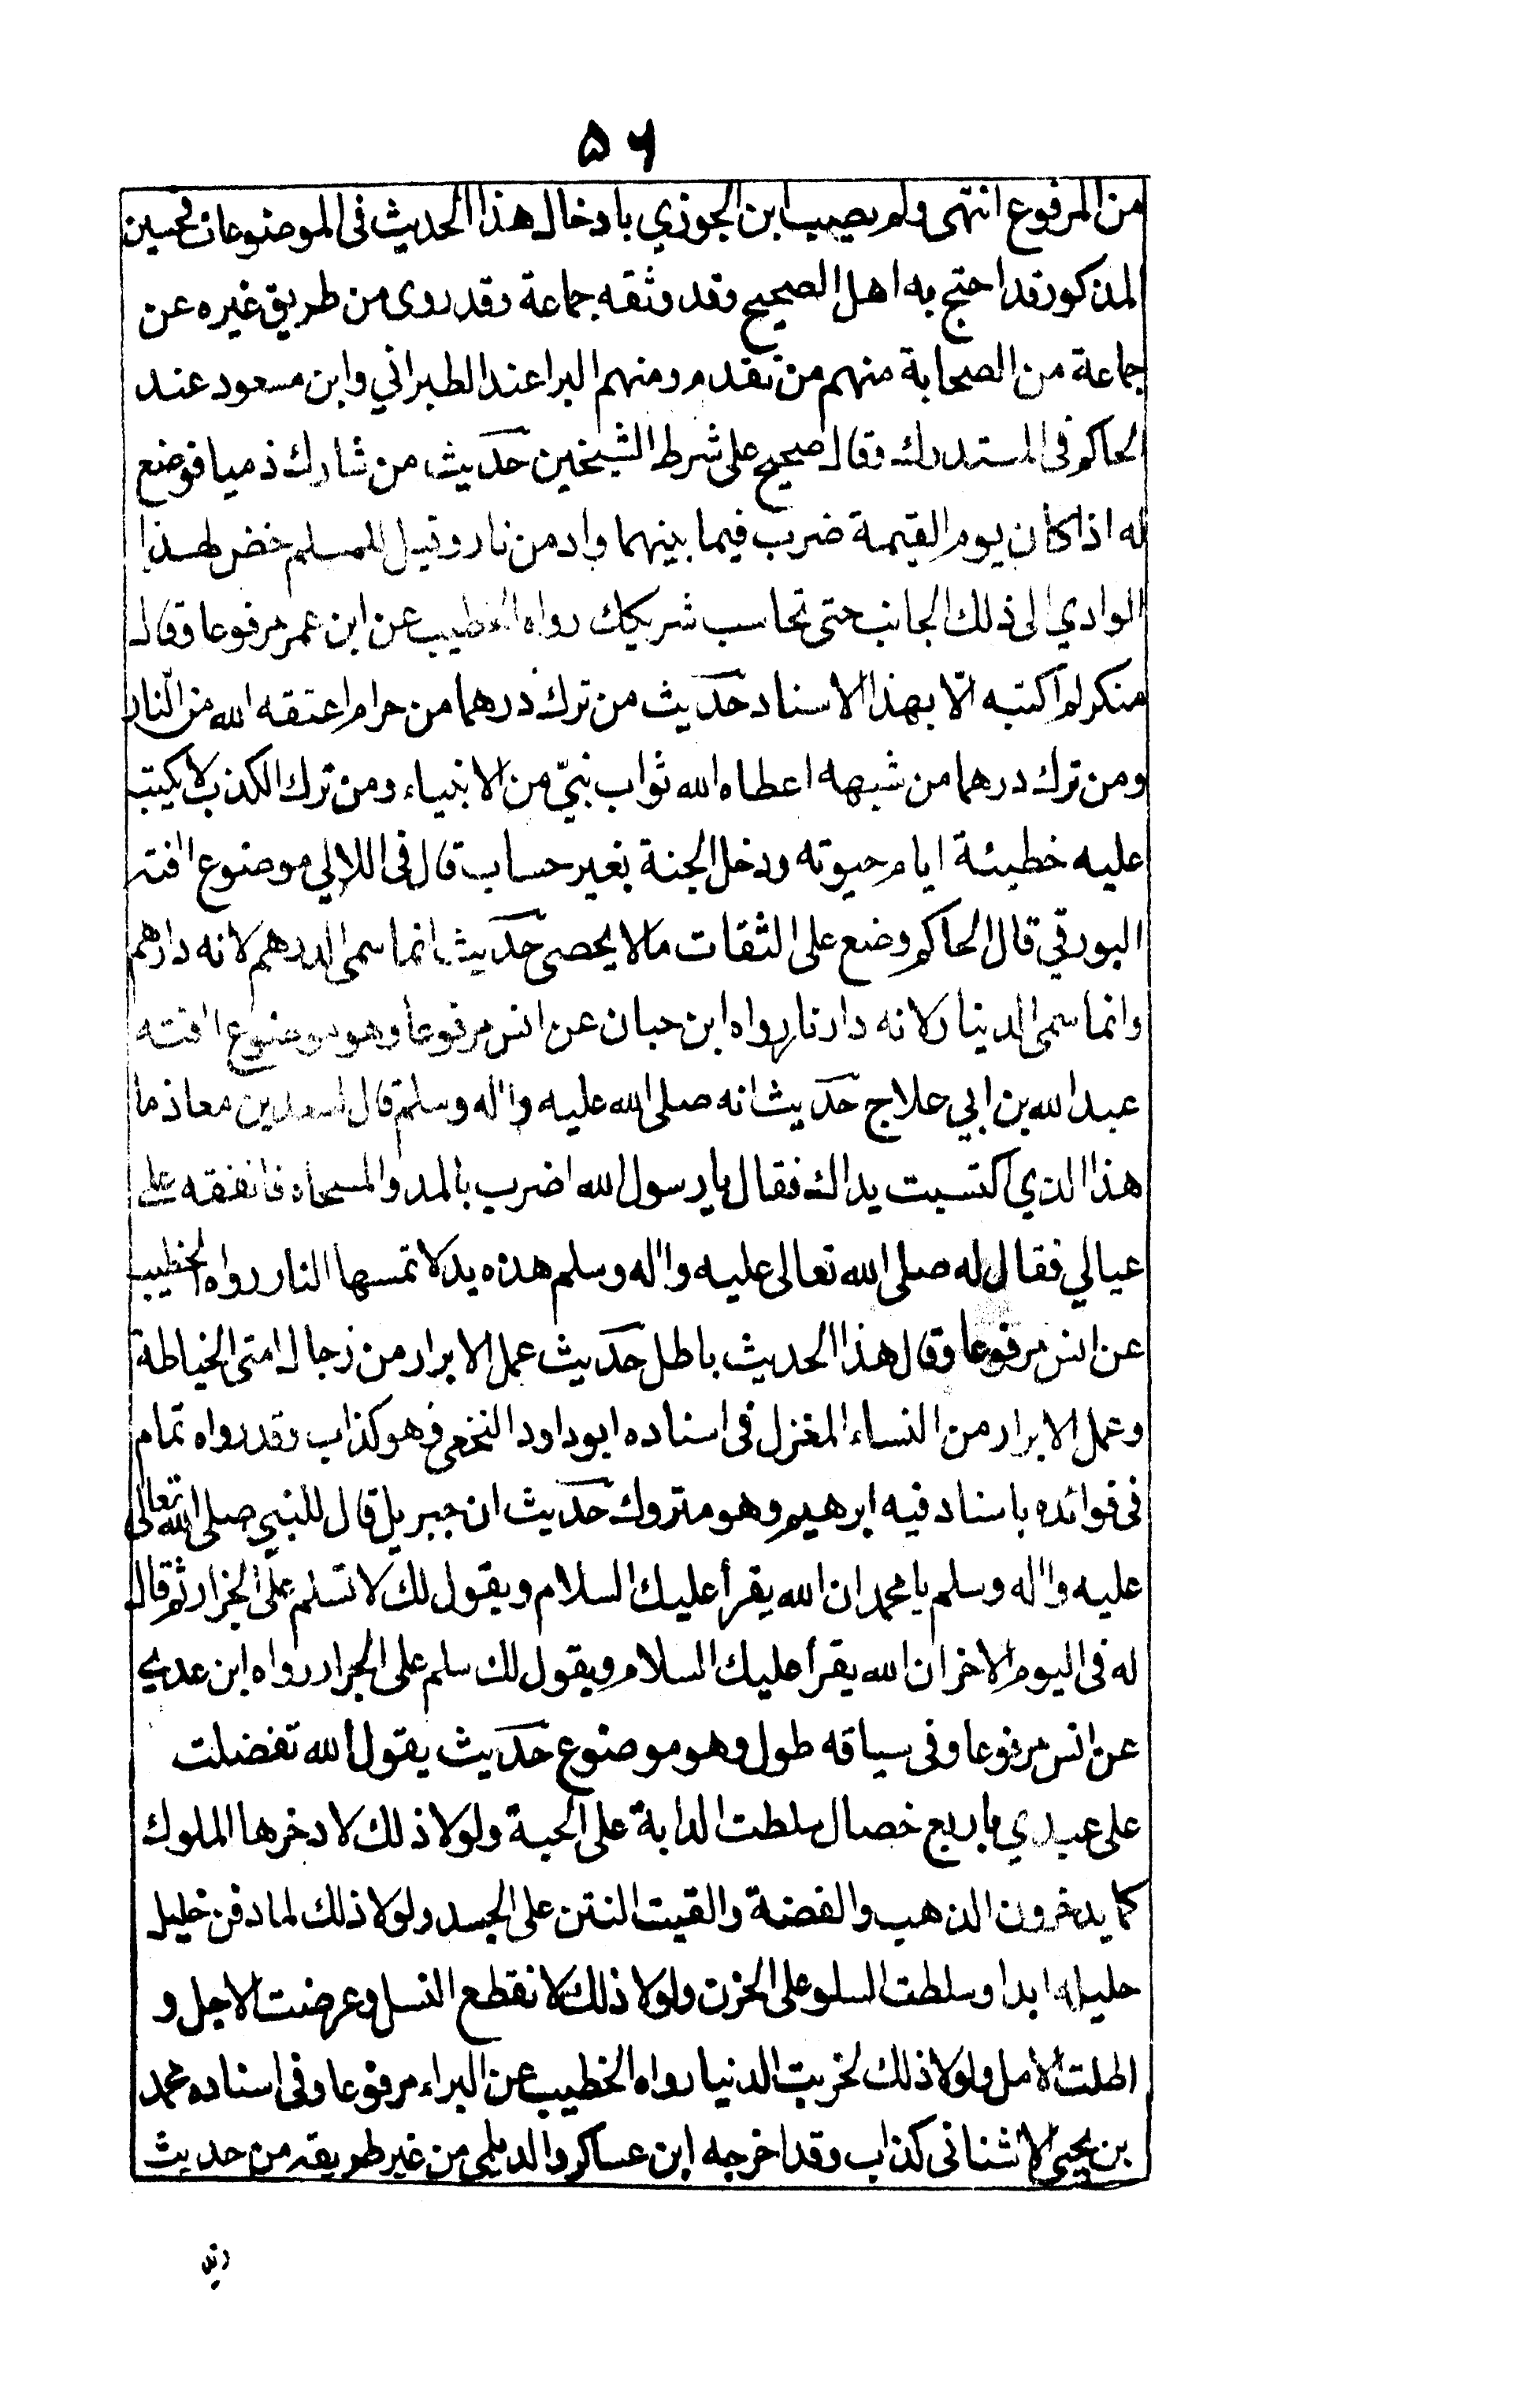 ۵۶
من المرفوع انتهى ولم يصيب ابن الجوزي بادخال هذا الحديث فى الموضوعات فحسين
المذكور قد احتج به اهل الصحيح وقد وثقه جماعة وقد روى من طريق غيره عن
جماعة من الصحابة منهم من تقدم ومنهم البرا عند الطبراني وابن مسعود عند
الحاكم فى المستدرك وقال صحيح على شرط الشيخين حديث من شارك ذميا فوضع
له اذا كان يوم القيمة ضرب فيما بينهما واد من نار وقيل للمسلم خض لهذا
الوادي الى ذلك الجانب حتى تحاسب شريكك رواه الخطيب عن ابن عمر مرفوعا وقال
منكر لم اكتبه الّا بهذا الاسناد حديث من ترك درهما من حرام اعتقه الله من النار
ومن ترك درهما من شبهه اعطاه الله ثواب نبيّ من الانبياء ومن ترك الكذب لا يكتب
عليه خطيئة ايام حيوته ودخل الجنة بغير حساب قال فى اللالي موضوع افته
البورقي قال الحاكم وضع على الثقات مالا يحصى حديث انما سمى الدرهم لانه دارهم
وانما سمى الدينار لانه دار نار رواه ابن حبان عن انس مرفوعا وهو موضوع افته
عبد الله بن ابي علاج حديث انه صلى الله عليه واله وسلم قال لسعد بن معاذ ما
هذا الذي اكتسبت يداك فقال يا رسول الله اضرب بالمد والمسحاه فانفقه على
عيالي فقال له صلى الله تعالى عليه واله وسلم هذه يد لا تمسها النار رواه الخطيب
عن انس مرفوعا وقال هذا الحديث باطل حديث عمل الابرار من رجال امتى الخياطة
وعمل الابرار من النساء المغزل فى اسناده ابو داود النخعى وهو كذاب وقد رواه تمام
فى فوائده باسناد فيه ابرهيم وهو متروك حديث ان جبريل قال للنبي صلى الله تعالى
عليه واله وسلم يا محمد ان الله يقرأ عليك السلام ويقول لك لا تسلم على الجزار ثم قال
له فى اليوم الاخر ان الله يقرأ عليك السلام ويقول لك سلم على الجزار رواه ابن عدي
عن انس مرفوعا وفى سياقه طول وهو موضوع حديث يقول الله تفضلت
على عبدي باربع خصال سلطت الدابة على الحبة ولولا ذلك لادخرها الملوك
كما يدخرون الذهب والفضة والقيت النتن على الجسد ولولا ذلك لما دفن خليل
خليله ابدا وسلطت السلو على الحزن ولولا ذلك لانقطع النسل وعرضت الاجل و
اطلت الامل ولولا ذلك لخربت الدنيا رواه الخطيب عن البراء مرفوعا وفى اسناده محمد
بن يحيى الاشنانى كذاب وقد اخرجه ابن عساكر والديلمى من غير طريقه من حديث